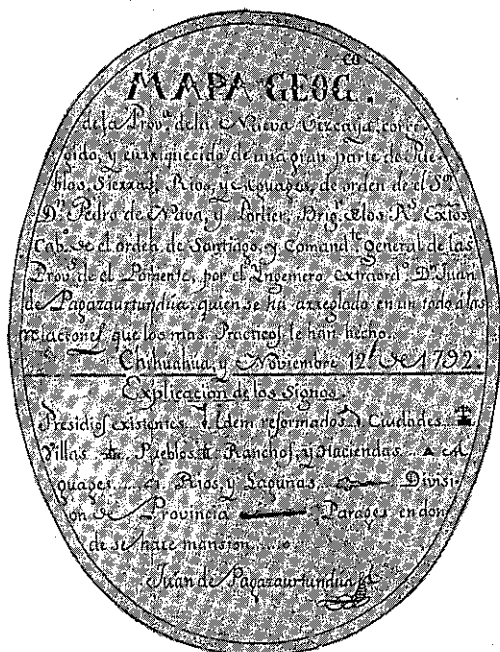 MAPA GEOG.co
de la Prov.a de la Nueva Vizcaya, corre-
gido, y enrriquecido de una gran parte de Pue-
blos, Sierras, Rios, y Aguages, de orden de el S.or
D.n Pedro de Nava, y Portier, Brig.r de los R.s Extos
Cab.o de el orden de Santiago, y Comand.te General de las
Prov.s de el Poniente, por el Yngeniero Extraord.o D.n Juan
de Pagazaurtundua, quien se há arreglado en un todo a las
relaciones que los mas Practicos le han hecho.
Chihuahua, y Noviembre 12, de 1792.
Explicación de los Signos.
Presidios exisientes Ydem reformados Ciudades
Villas Pueblos Ranchos, y Haciendas A-
guages Rios, y Lagunas Divisi-
on de Provincia Parages en don-
de se hace mansion
Juan de Pagazaurtundua